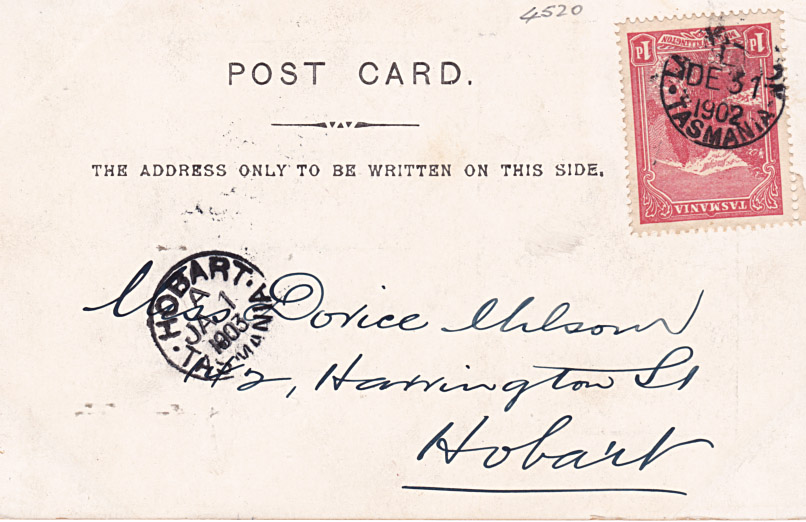 4520
POST CARD.
THE ADDRESS ONLY TO BE WRITTEN ON THIS SIDE.
1d 1d
TASMANIA
DE 31
1902
TASMANIA
HOBART
A
JA 1
1903
TASMANIA
Miss Dorice
Harrington St
Hobart